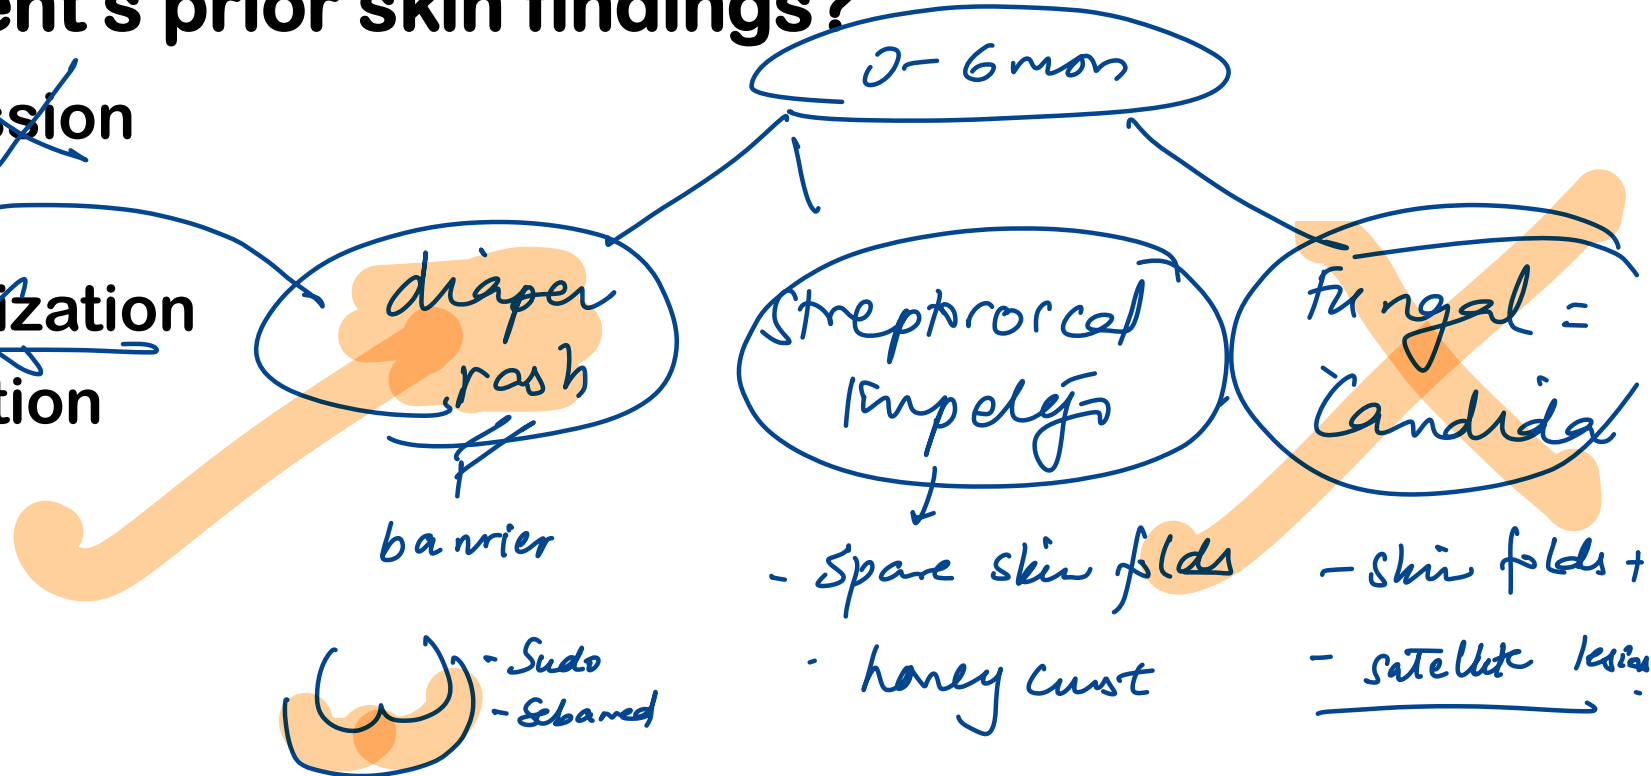 ent's prior skin findings?
0-6mon
ssion
ization
tion
diaper
rash
Streptococcal
Impetigo
Fungal =
Candida
barrier
- Spare skin folds
- honey crust
- skin folds +
- satellite lesion
- Sudo
- Sebamed